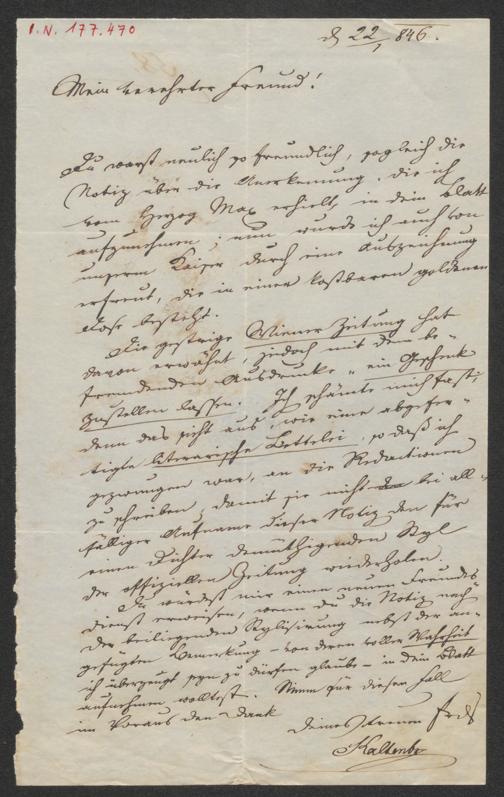 I.N. 177.470
d 22/1 846.
Mein verehrter Freund!
Du warst neulich so freundlich, sogleich die
Notiz über die Anerkennung, die ich
vom Herzog Max erhielt, in dein Blatt
aufzunehmen; nun wurde ich auch von
unserm Kaiser durch eine Auszeichnung
erfreut, die in einer kostbaren goldenen
Dose besteht.
Die gestrige Wiener Zeitung hat
davon erwähnt, jedoch mit dem be-
fremdenden Ausdrucke „ein Geschenk
zustellen lassen. Ich schämte mich fast;
denn das sieht aus, wie eine abgefer-
tigte literarische Bettelei, so daß ich
gezwungen war, an die Redactionen
zu schreiben, damit sie nicht bei all-
fälliger Aufname dieser Notiz den für
einen Dichter demüthigenden Styl
der offiziellen Zeitung wiederholen.
Du würdest mir einen neuen Freundes
dienst erweisen, wenn du die Notiz nach
der beiliegenden Stylisirung nebst der an-
gefügten Bemerkung – von deren voller Wahrheit
ich überzeugt seyn zu dürfen glaube – in dein Blatt
aufnehmen wolltest. Nimm für diesen Fall
im Voraus den Dank
deines treuen Frds
Kaltenb